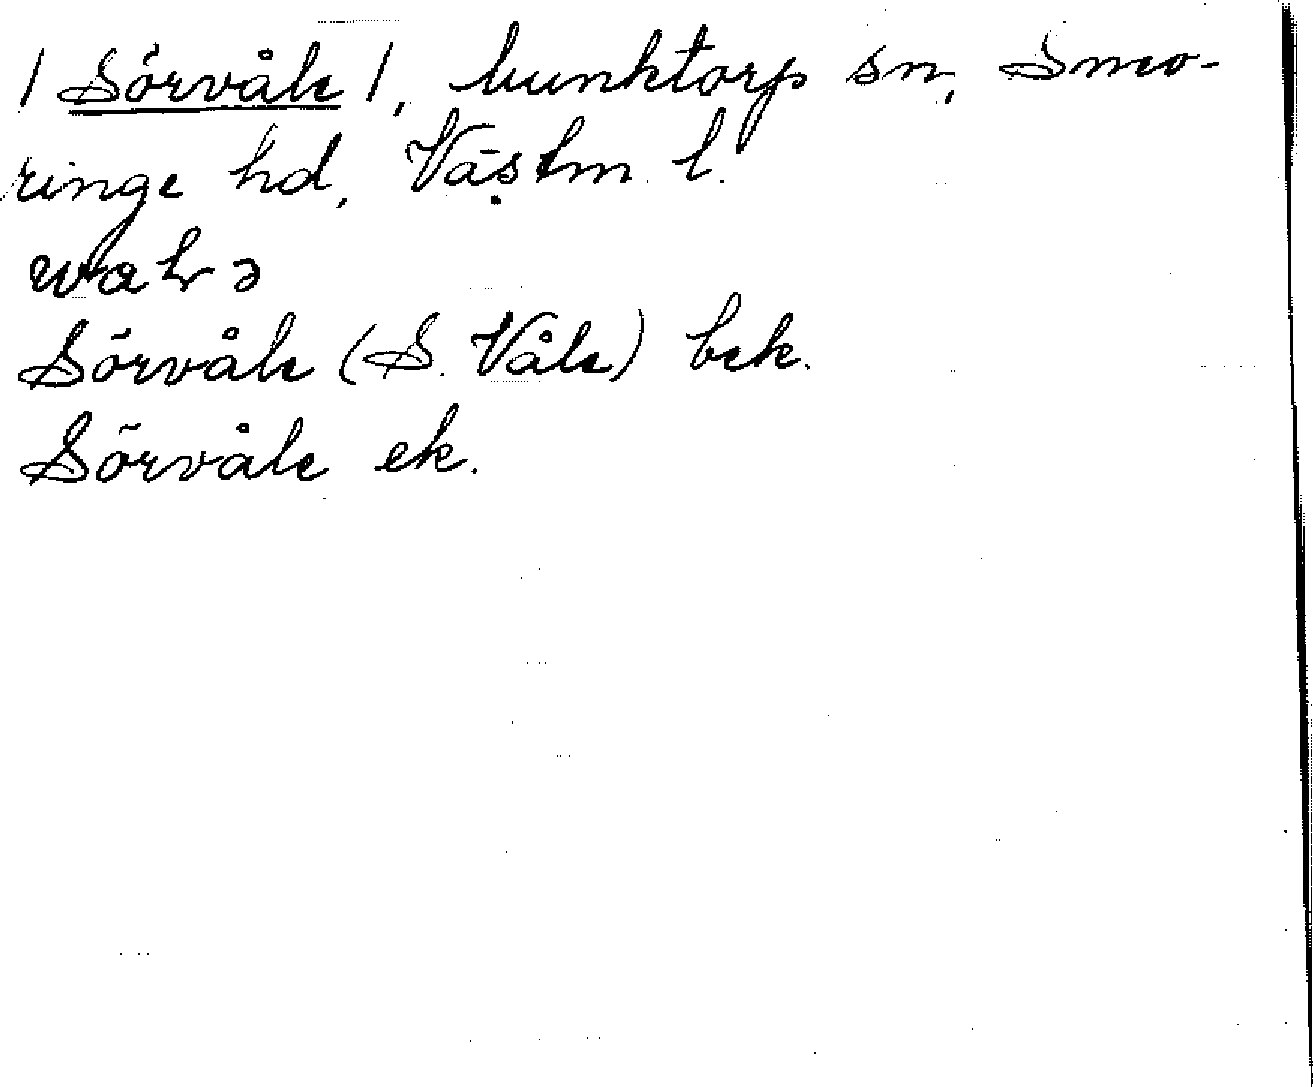 / Sörvåle /, Munktorp sn, Snev-
ringe hd, Västm. l.
Sörvåle (S. Våle) bek.
Sörvåle ek.